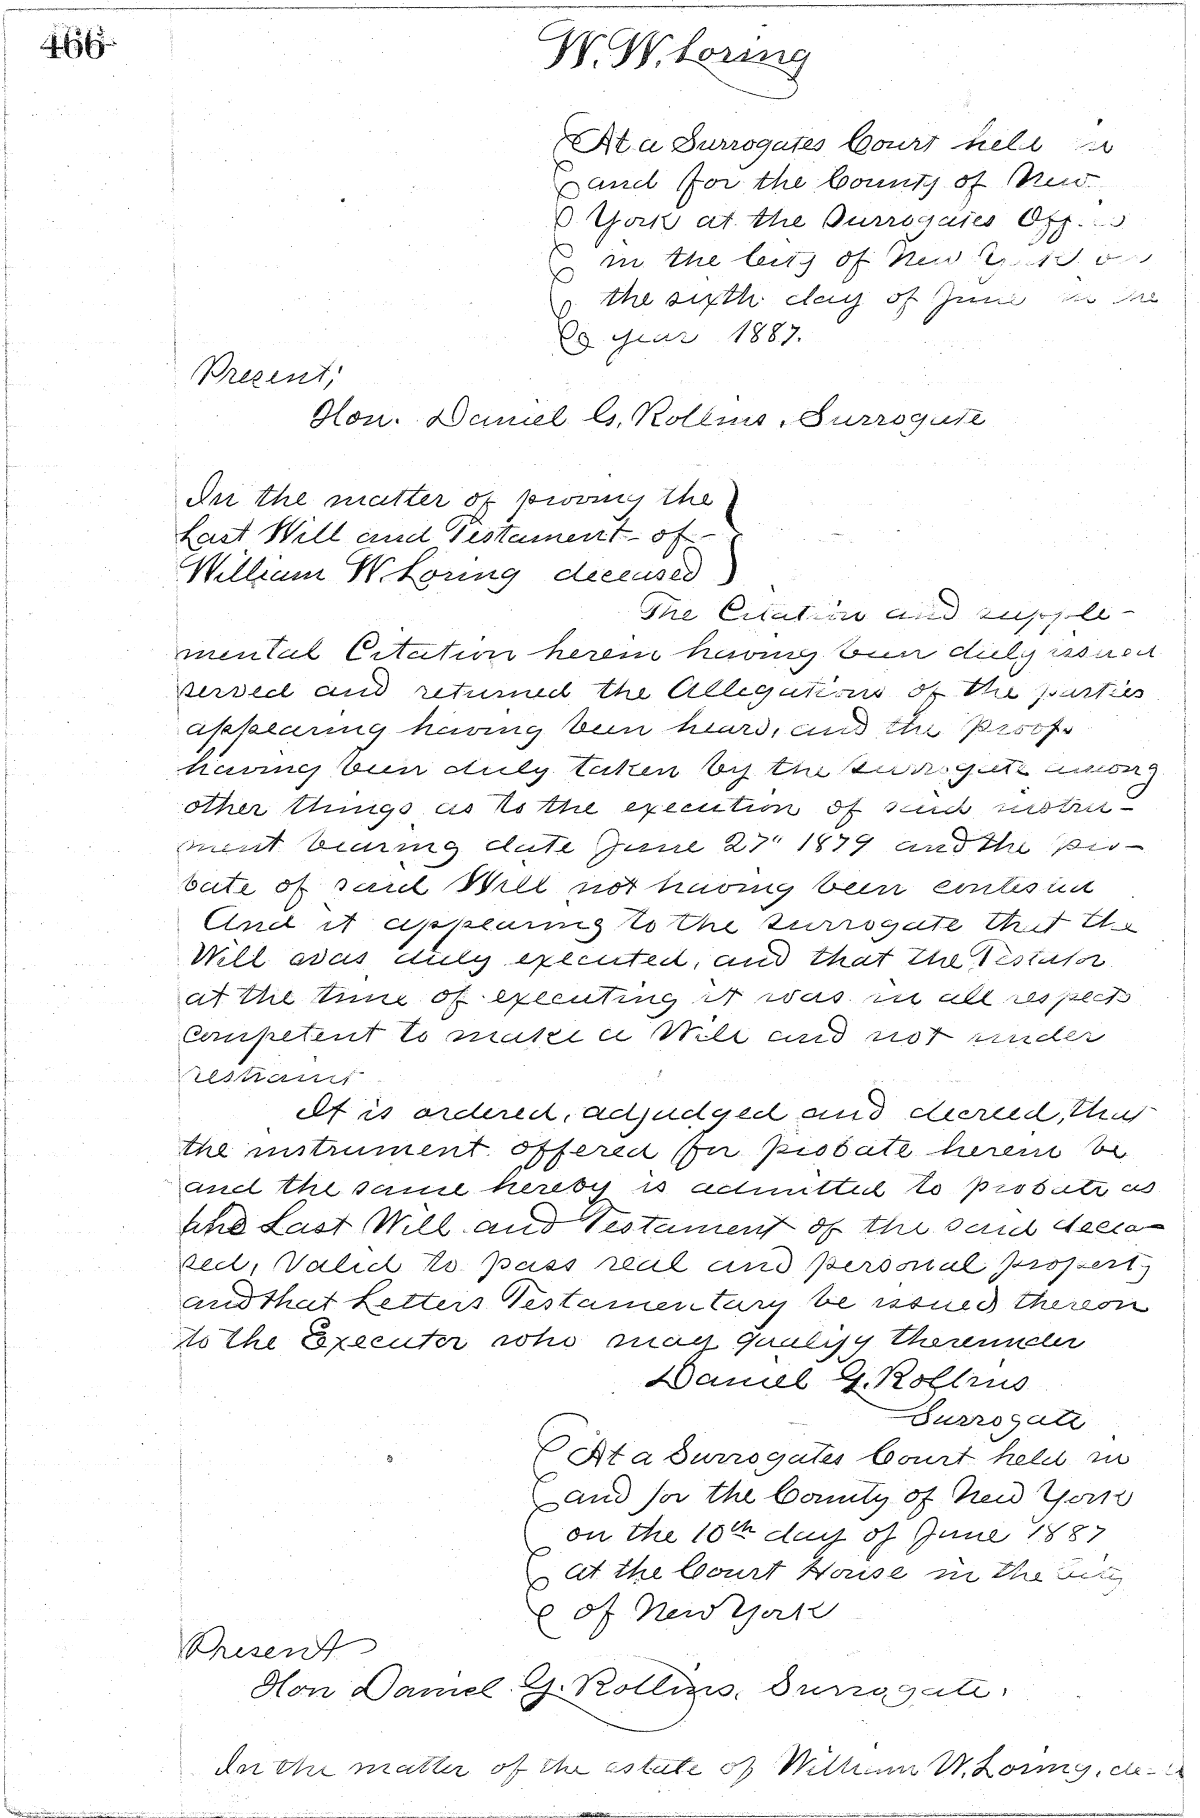 466
W. W. Loring
At a Surrogates Court held in
and for the County of New
York at the Surrogates
in the City of New York on
the sixth day of June in the
year 1887.
Present;
Hon. Daniel G. Rollins, Surrogate
In the matter of proving the
Last Will and Testament of
William W. Loring deceased
The Citation and supple-
mental Citation herein having been duly issued
served and returned the Allegations of the parties
appearing having been heard, and the Proofs
having been duly taken by the Surrogate among
other things as to the execution of said instru-
ment bearing date June 27" 1879 and the pro-
bate of said Will not having been contested
And it appearing to the Surrogate that the
Will was duly executed, and that the Testator
at the time of executing it was in all respects
Competent to make a Will and not under
restraint
It is ordered, adjudged and decreed, that
the instrument offered for probate herein be
and the same hereby is admitted to probate as
the Last Will and Testament of the said decea-
sed, Valid to pass real and personal property
and that Letters Testamentary be issued thereon
to the Executor who may qualify thereunder
Daniel G. Rollins
Surrogate
At a Surrogates Court held in
and for the County of New York
on the 10th day of June 1887
at the Court House in the City
of New York
Present
Hon Daniel G. Rollins, Surrogate.
In the matter of the estate of William W. Loring,